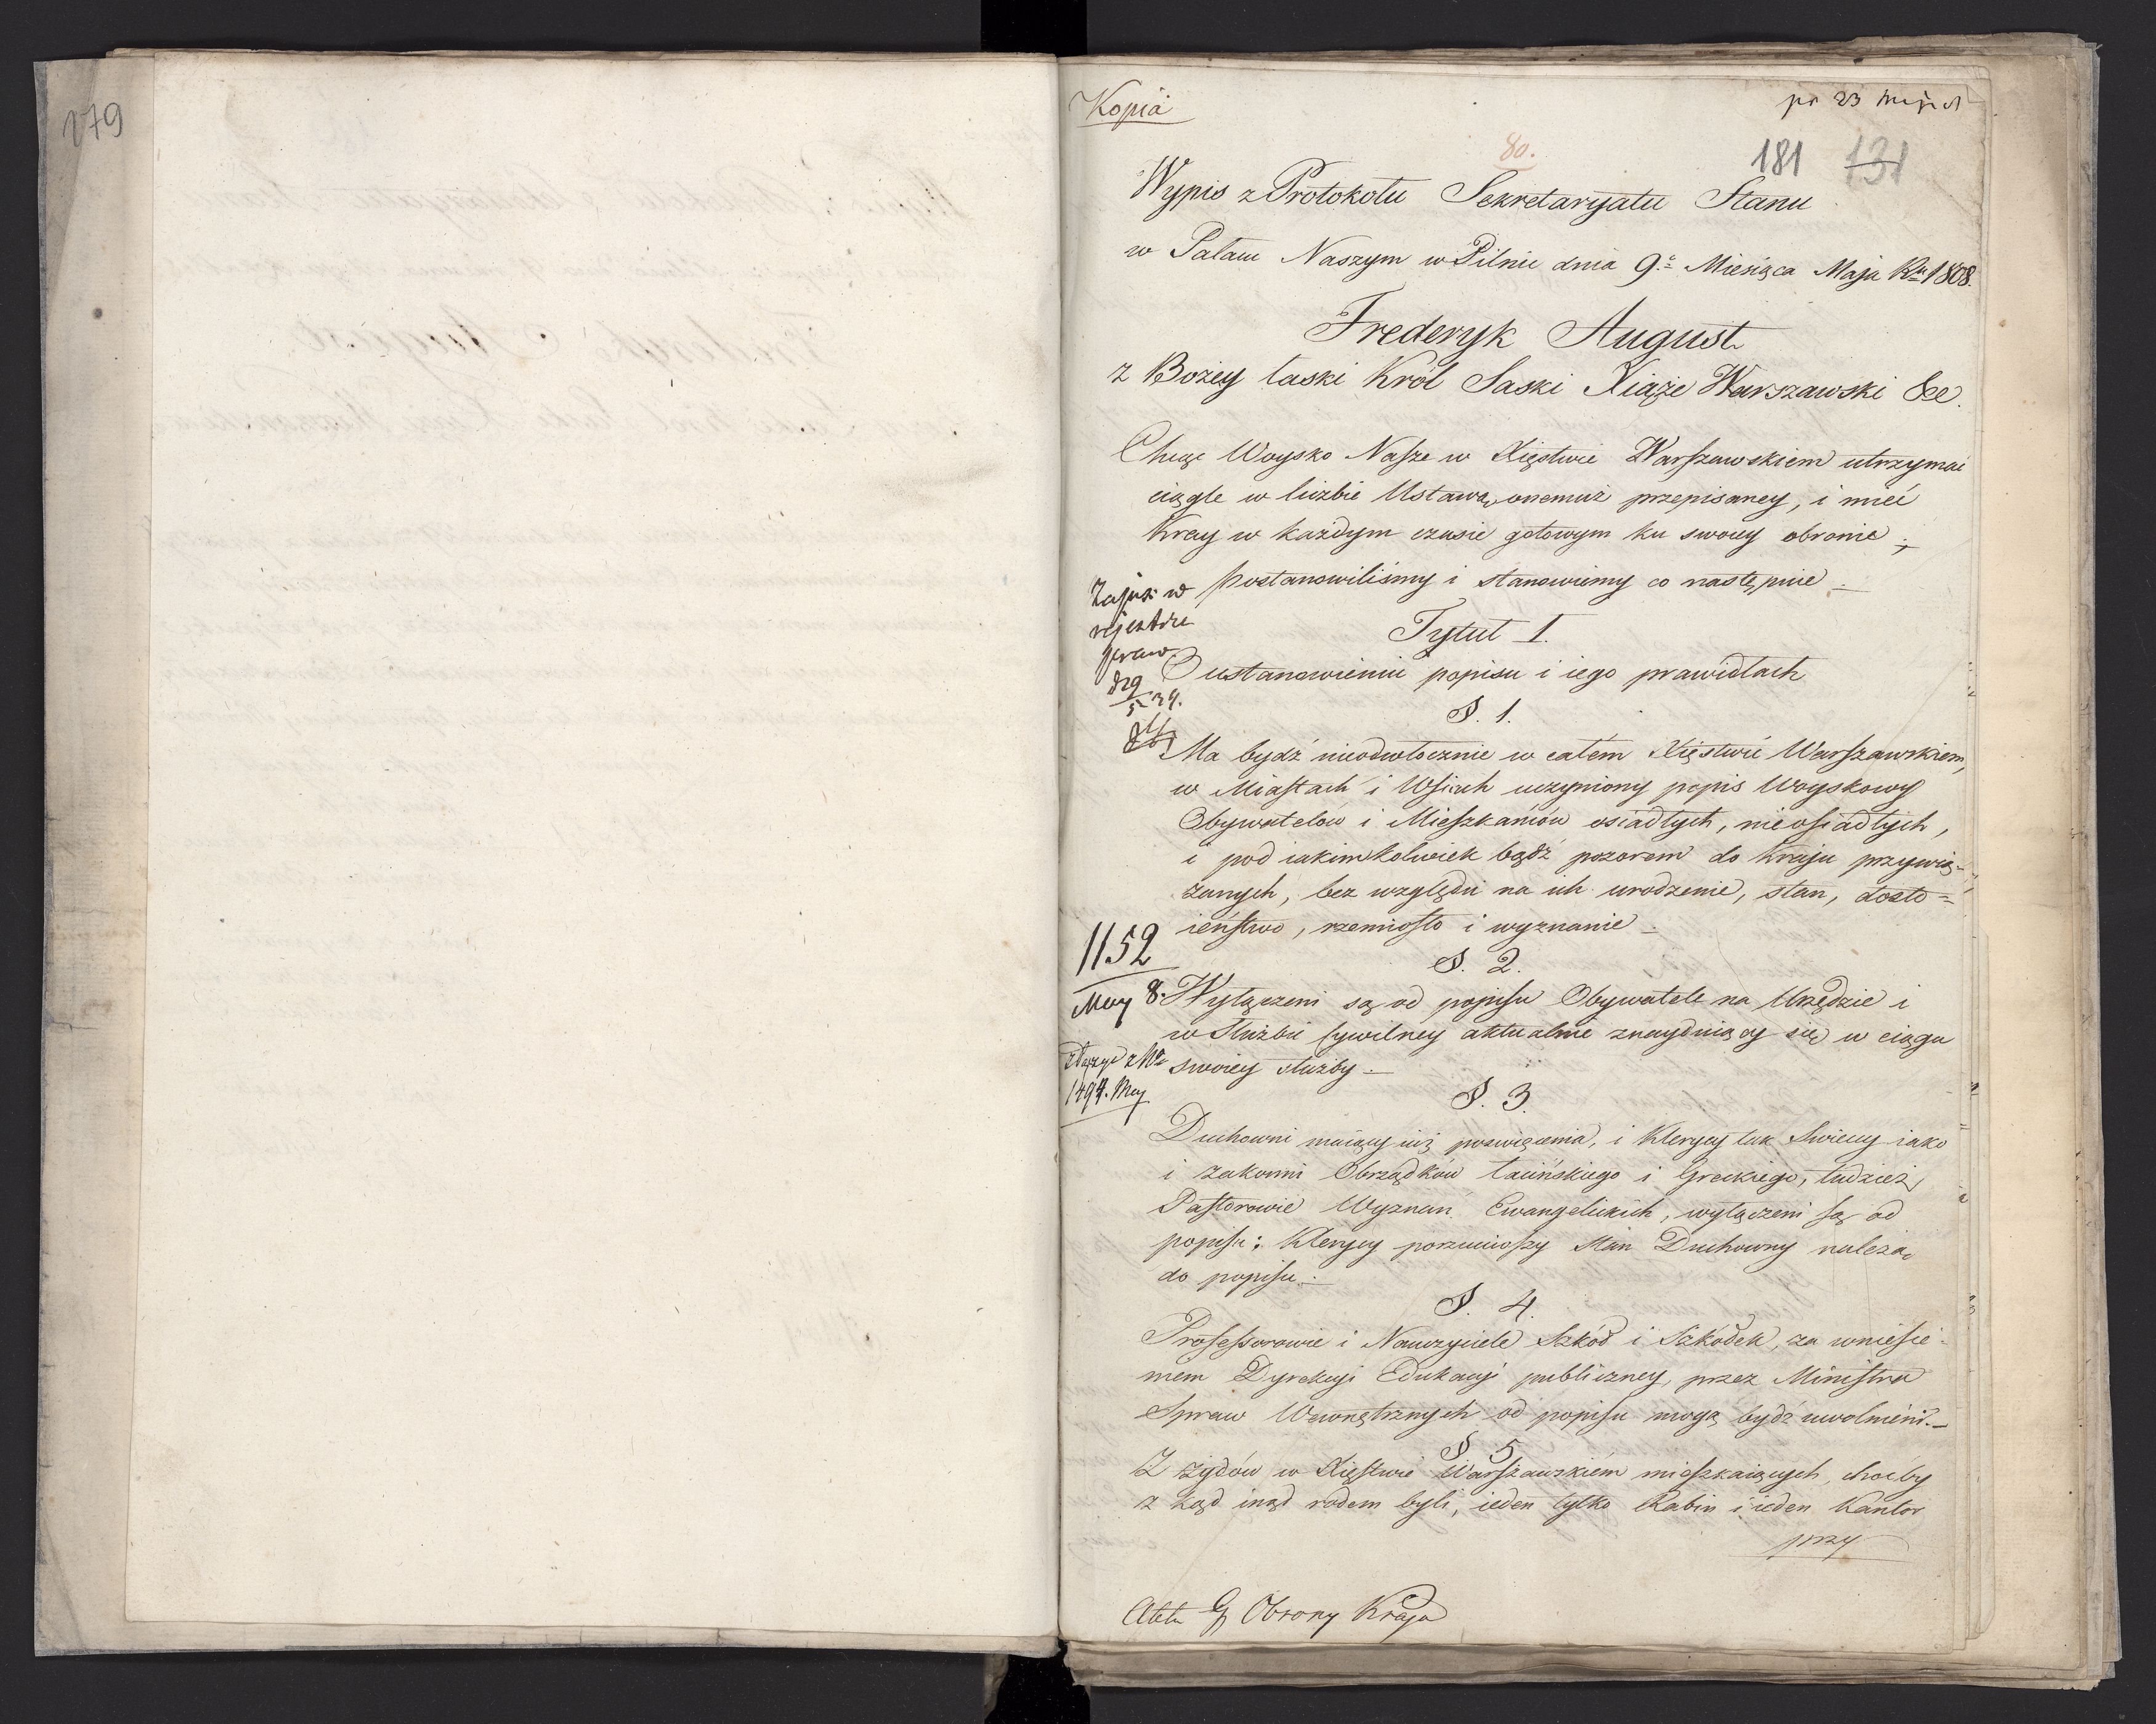 179
Kopia
pr 23 Maja
80.
181 131
Wypis z Protokołu Sekretaryatu Stanu
w Pałacu Naszym w Pilnic dnia 9.º Miesiąca Maja Ru 1808.
Frederyk August
z Bożey łaski Król Saski Xiąże Warszawski &c.
Chcąc Woysko Nasze w Xięstwie Warszawskiem utrzymać
ciągle w liczbie Ustawą onemuż przepisaney, i mieć
Kray w każdym czasie gotowym ku swoiey obronie;
postanowiliśmy i stanowiemy co następuie
Zapis: w
rejestrze
praw
Tytuł I.
O ustanowieniu popisu i iego prawidłach
§. 1.
Ma bydź nieodwłocznie w całem Xięstwie Warszawskiem,
w Miastach i Wsiach uczyniony popis Woyskowy
Obywatelów i Mieszkańców osiadłych, nieosiadłych,
i pod iakimkolwiek bądź pozorem do Kraju przywią-
zanych, bez względu na ich urodzenie, stan, dosto=
ieństwo, rzemiosło i wyznanie
1152
May 8.
§. 2.
Wyłączeni są od popisu Obywatele na Urzędzie i
w Służbie Cywilney aktualnie znayduiący się w ciągu
swoiey służby
złączyć z No
1494. May
§. 3.
Duchowni maiący iuż poswięcenia, i Klerycy tak Swieccy iako
i zakonni Obrządków łacińskiego i Greckiego, tudzież
Pastorowie Wyznań Ewangelickich, wyłączeni są od
popisu: Klerycy porzuciwszy stan Duchowny należą
do popisu.
§. 4.
Professorowie i Nauczyciele Szkół i Szkółek, za wniesie-
niem Dyrekcyi Edukacyi publiczney, przez Ministra
Spraw Wewnętrznych od popisu mogą bydź uwolnieni.
§ 5
Z żydów w Xięstwie Warszawskiem mieszkaiących, choćby
z kąd inąd rodem byli, ieden tylko Rabin i ieden Kantor
przy
Obrony Kraju